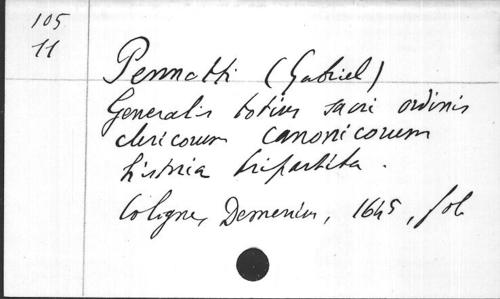 105
11
Pennotti (Gabriel)
Generalis totius sacri ordinis
clericorum canonicorum
historia tripartita.
Cologne, Demenius, 1645, fol